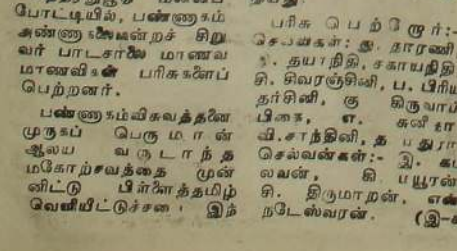 போட்டியில், பண்ணாகம்
அண்ணாகலைமன்றச் சிறு
வர் பாடசாலை மாணவ
மாணவிகள் பரிசுகளைப்
பெற்றனர்.
பண்ணாகம்விசுவத்தனை
முருகப் பெருமான்
ஆலய வருடாந்த
மகோற்சவத்தை முன்
னிட்டு பிள்ளைத்தமிழ்
வெளியீட்டுச்சபை இந்
பரிசு பெற்றோர்:-
செல்விகள்: தாரணி
தயாநிதி, சகாயநிதி
சி. சிவரஞ்சினி, ப. பிரிய
தர்சினி, கு கிருபாம்
பிகை, எ.
வி. சாந்தினி, த
செல்வன்கள்:- இ.
லவன், கி மயூரன்
சி. திருமாறன், என்
நடேஸ்வரன். (இ-